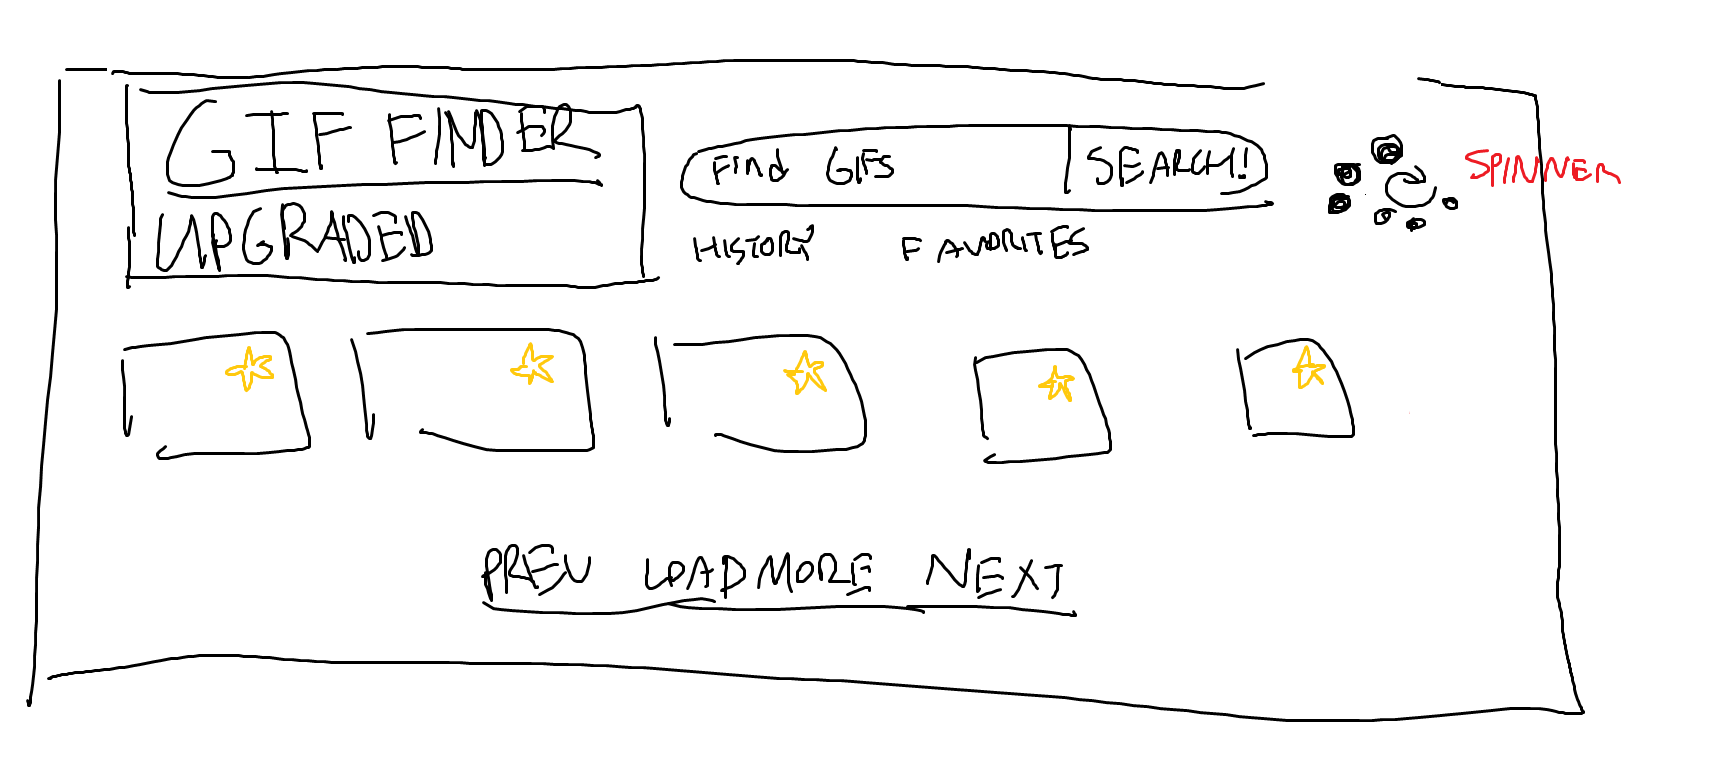 GIF FINDER
UPGRADED
Find GIFS
SEARCH!
SPINNER
HISTORY
FAVORITES
PREV
LOAD MORE
NEXT